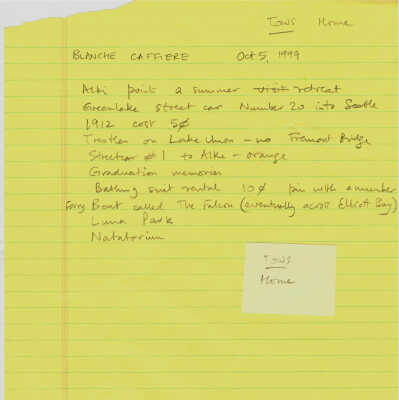 Tows Home
BLANCHE CAFFIERE Oct 5, 1999
Alki point a summer visit retreat
Greenlake street car Number 20 into Seattle
1912 cost 5¢
Trestles on Lake Union - no Fremont Bridge
Streetcar #1 to Alki - orange
Graduation memories
Bathing suit rental 10¢ pin with a number
Ferry Boat called The Falcon (eventually across Elliott Bay)
Luna Park
Natatorium
Tows
Home